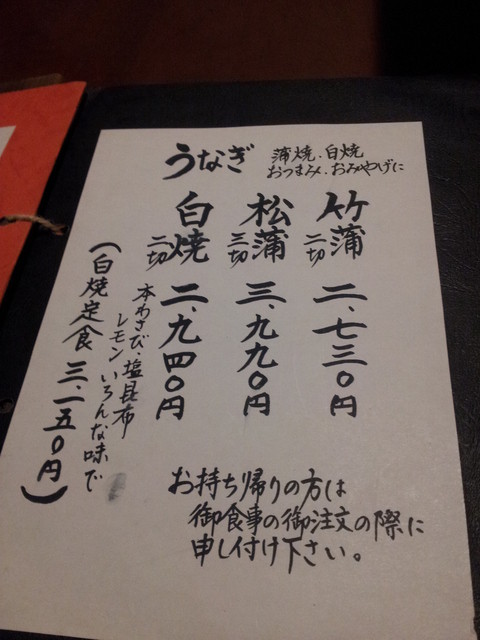 うなぎ
蒲焼、白焼
おつまみ、おみやげに
竹蒲 二切 二、七三〇円
松蒲 三切 三、九九〇円
白焼 二切 二、九四〇円
本わさび、塩昆布
レモン いろんな味で
（白焼定食 三、一五〇円）
お持ち帰りの方は
御食事の御注文の際に
申し付け下さい。